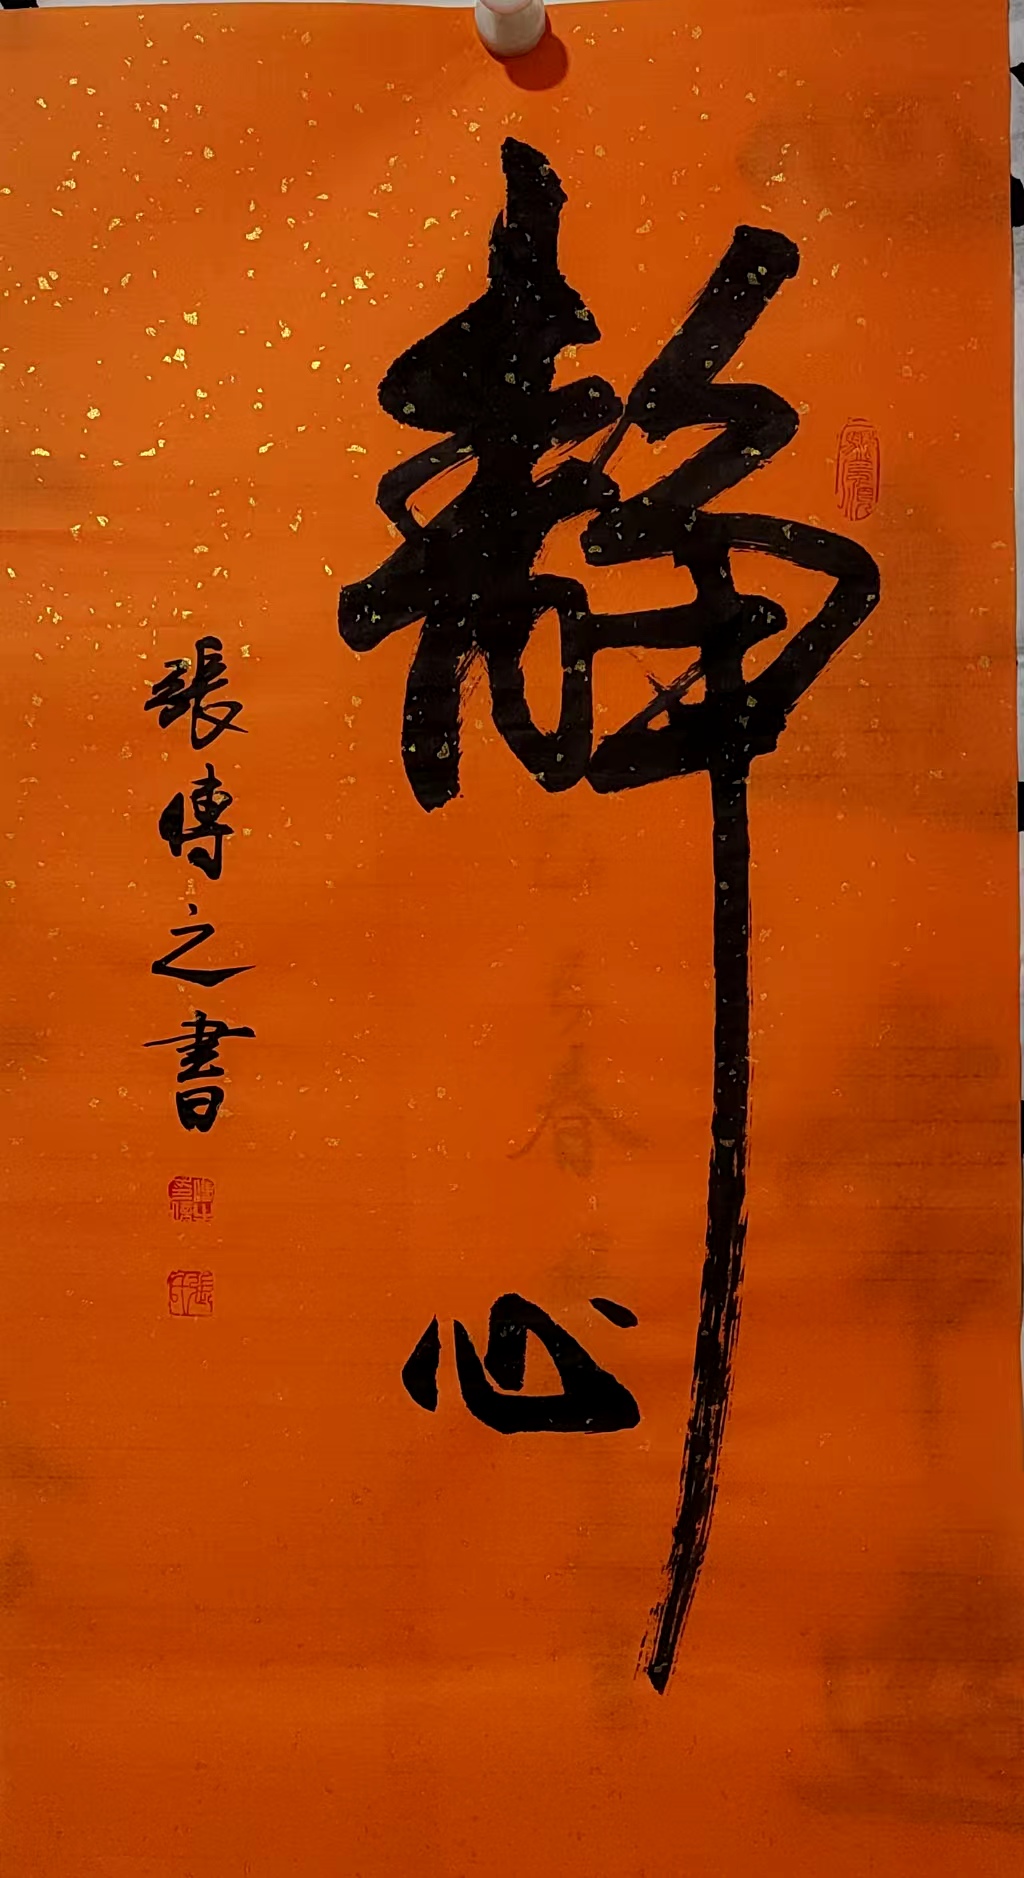 靜心
張傳之書